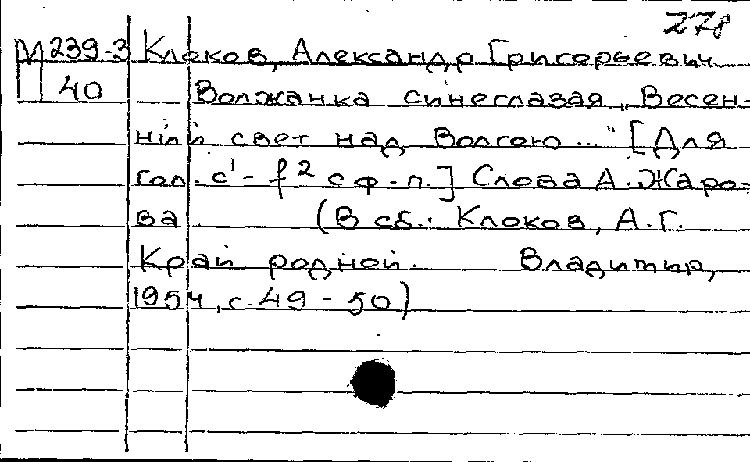 278
М 239-3 Клоков, Александр Григорьевич
40 Волжанка синеглазая „Весен-
ний свет над Волгою..." [Для
гол. с¹ - f² с ф-п.] Слова А. Жаро-
ва (В сб.: Клоков, А. Г.
Край родной. Владимир,
1954, с. 49 - 50)